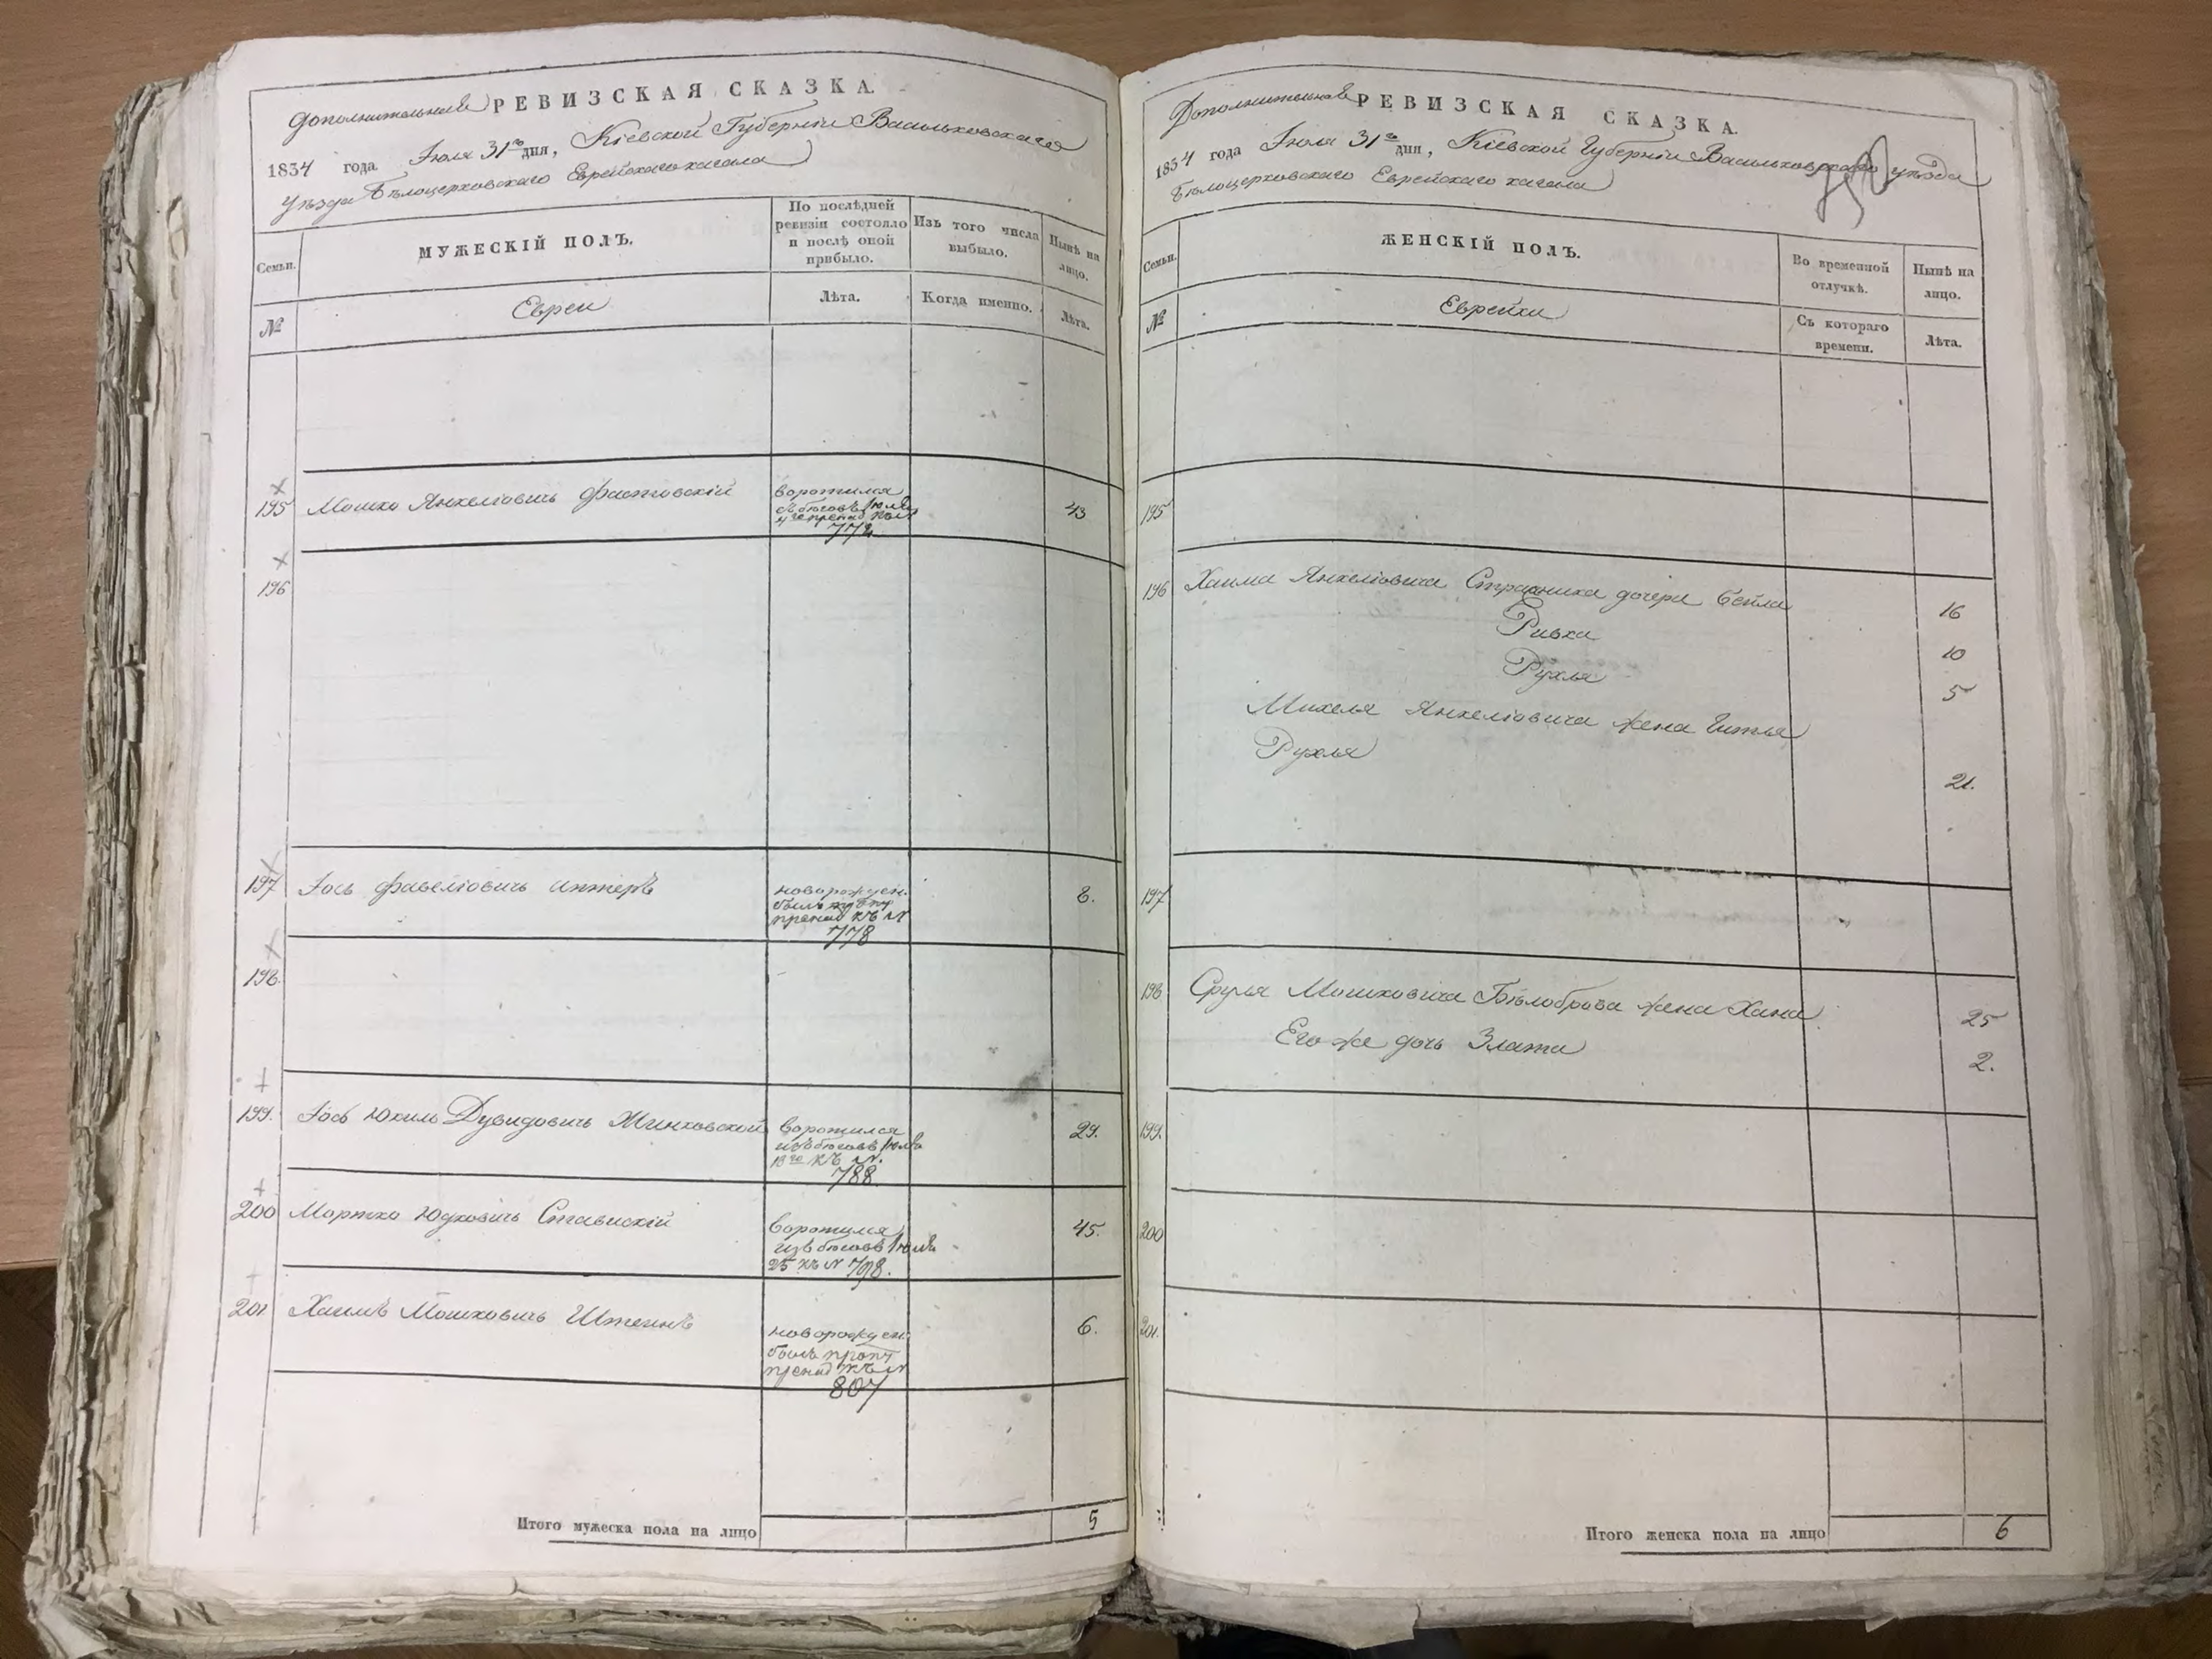 Дополнительная РЕВИЗСКАЯ СКАЗКА.
1834 года Іюля 31го дня, Кіевской Губерніи Васильковскаго
уѣзда Бѣлоцерковскаго Еврейскаго кагала
Семьи.
МУЖЕСКІЙ ПОЛЪ.
По послѣдней
ревизіи состояло
и послѣ оной
прибыло.
Изъ того числа
выбыло.
Нынѣ на
лицо.
№
Евреи
Лѣта.
Когда именно.
Лѣта.
195
Мошко Янкеліовичъ Фастовскій
воротился
772
43
196
197
Іось Фавеліовичъ
новорожден.
778
8.
198.
199.
Іось Юхиль Дувидовичъ Жинховской
воротился
изъ бѣговъ Іюля
19го къ №.
788.
29.
200
Мортко Юдковичъ Ставискій
воротился
изъ бѣговъ Іюля
25 къ № 798.
45.
201.
Хаимъ Мошковичъ Штеинъ
новорожден
былъ проп
къ №
807
6.
Итого мужеска пола на лицо
5
Дополнительная РЕВИЗСКАЯ СКАЗКА.
1834 года Іюля 31го дня, Кіевской Губерніи Васильковскаго уѣзда
Бѣлоцерковскаго Еврейскаго кагала
Семьи.
ЖЕНСКІЙ ПОЛЪ.
Во временной
отлучкѣ.
Нынѣ на
лицо.
№
Еврейки
Съ котораго
времени.
Лѣта.
195
196 Хаима Янкеліовича дочери Бейла
16
Ривка
10
Рухля
5
Михеля Янкеліовича жена Гитля
Рухля
21.
197
198 Сруля Мошковича Бѣлоброва жена Хана
25
Его же дочь Злата
2.
199.
200
201.
Итого женска пола на лицо
6